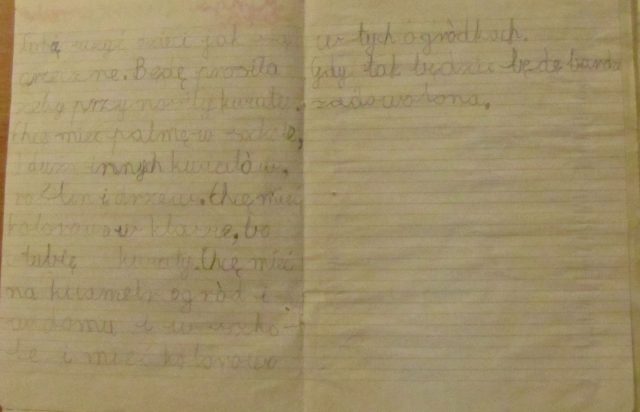 uczyć dzieci jak są
grzeczne. Będę prosiła
żeby przynosiły kwiaty.
Chcę mieć palmę w szkole,
dużo innych kwiatów,
roślin i drzew. Chcę mieć
kolorowo w klasie, bo
lubię kwiaty. Chcę mieć
na kwiaty ogród i
w domu i w szko-
le i mieć kolorowo
w tych ogródkach.
Gdy tak będzie będę bardzo
zadowolona.